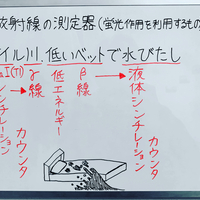 放射線の測定器(蛍光作用を利用するもの
イル川 低いベットで水びたし
aI(Tl)シンチレーションカウンタ
γ線
低エネルギー
β線
液体シンチレーションカウンタ